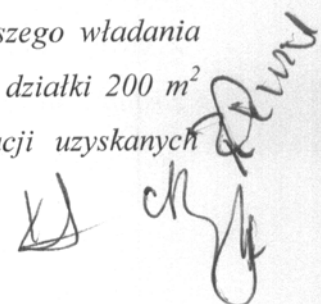 szego władania
działki 200 m²
cji uzyskanych